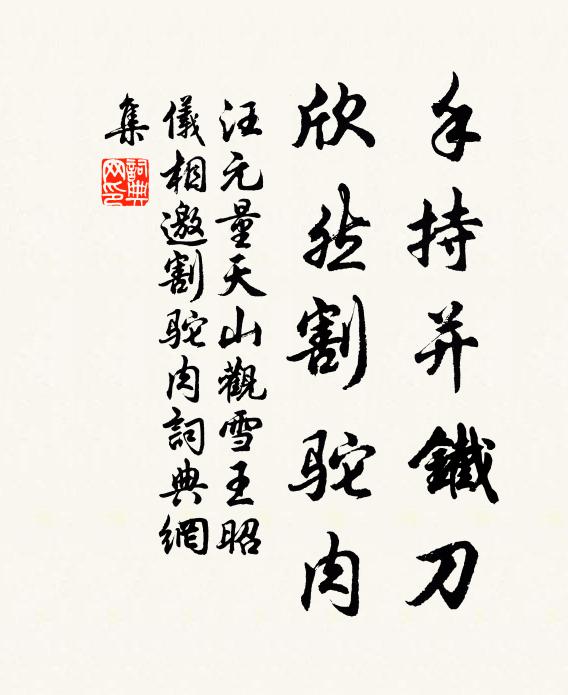 手持并鐵刀
欣然割駝肉
汪元量天山觀雪王昭
儀相邀割駝肉詞典網
集
詞典
网印